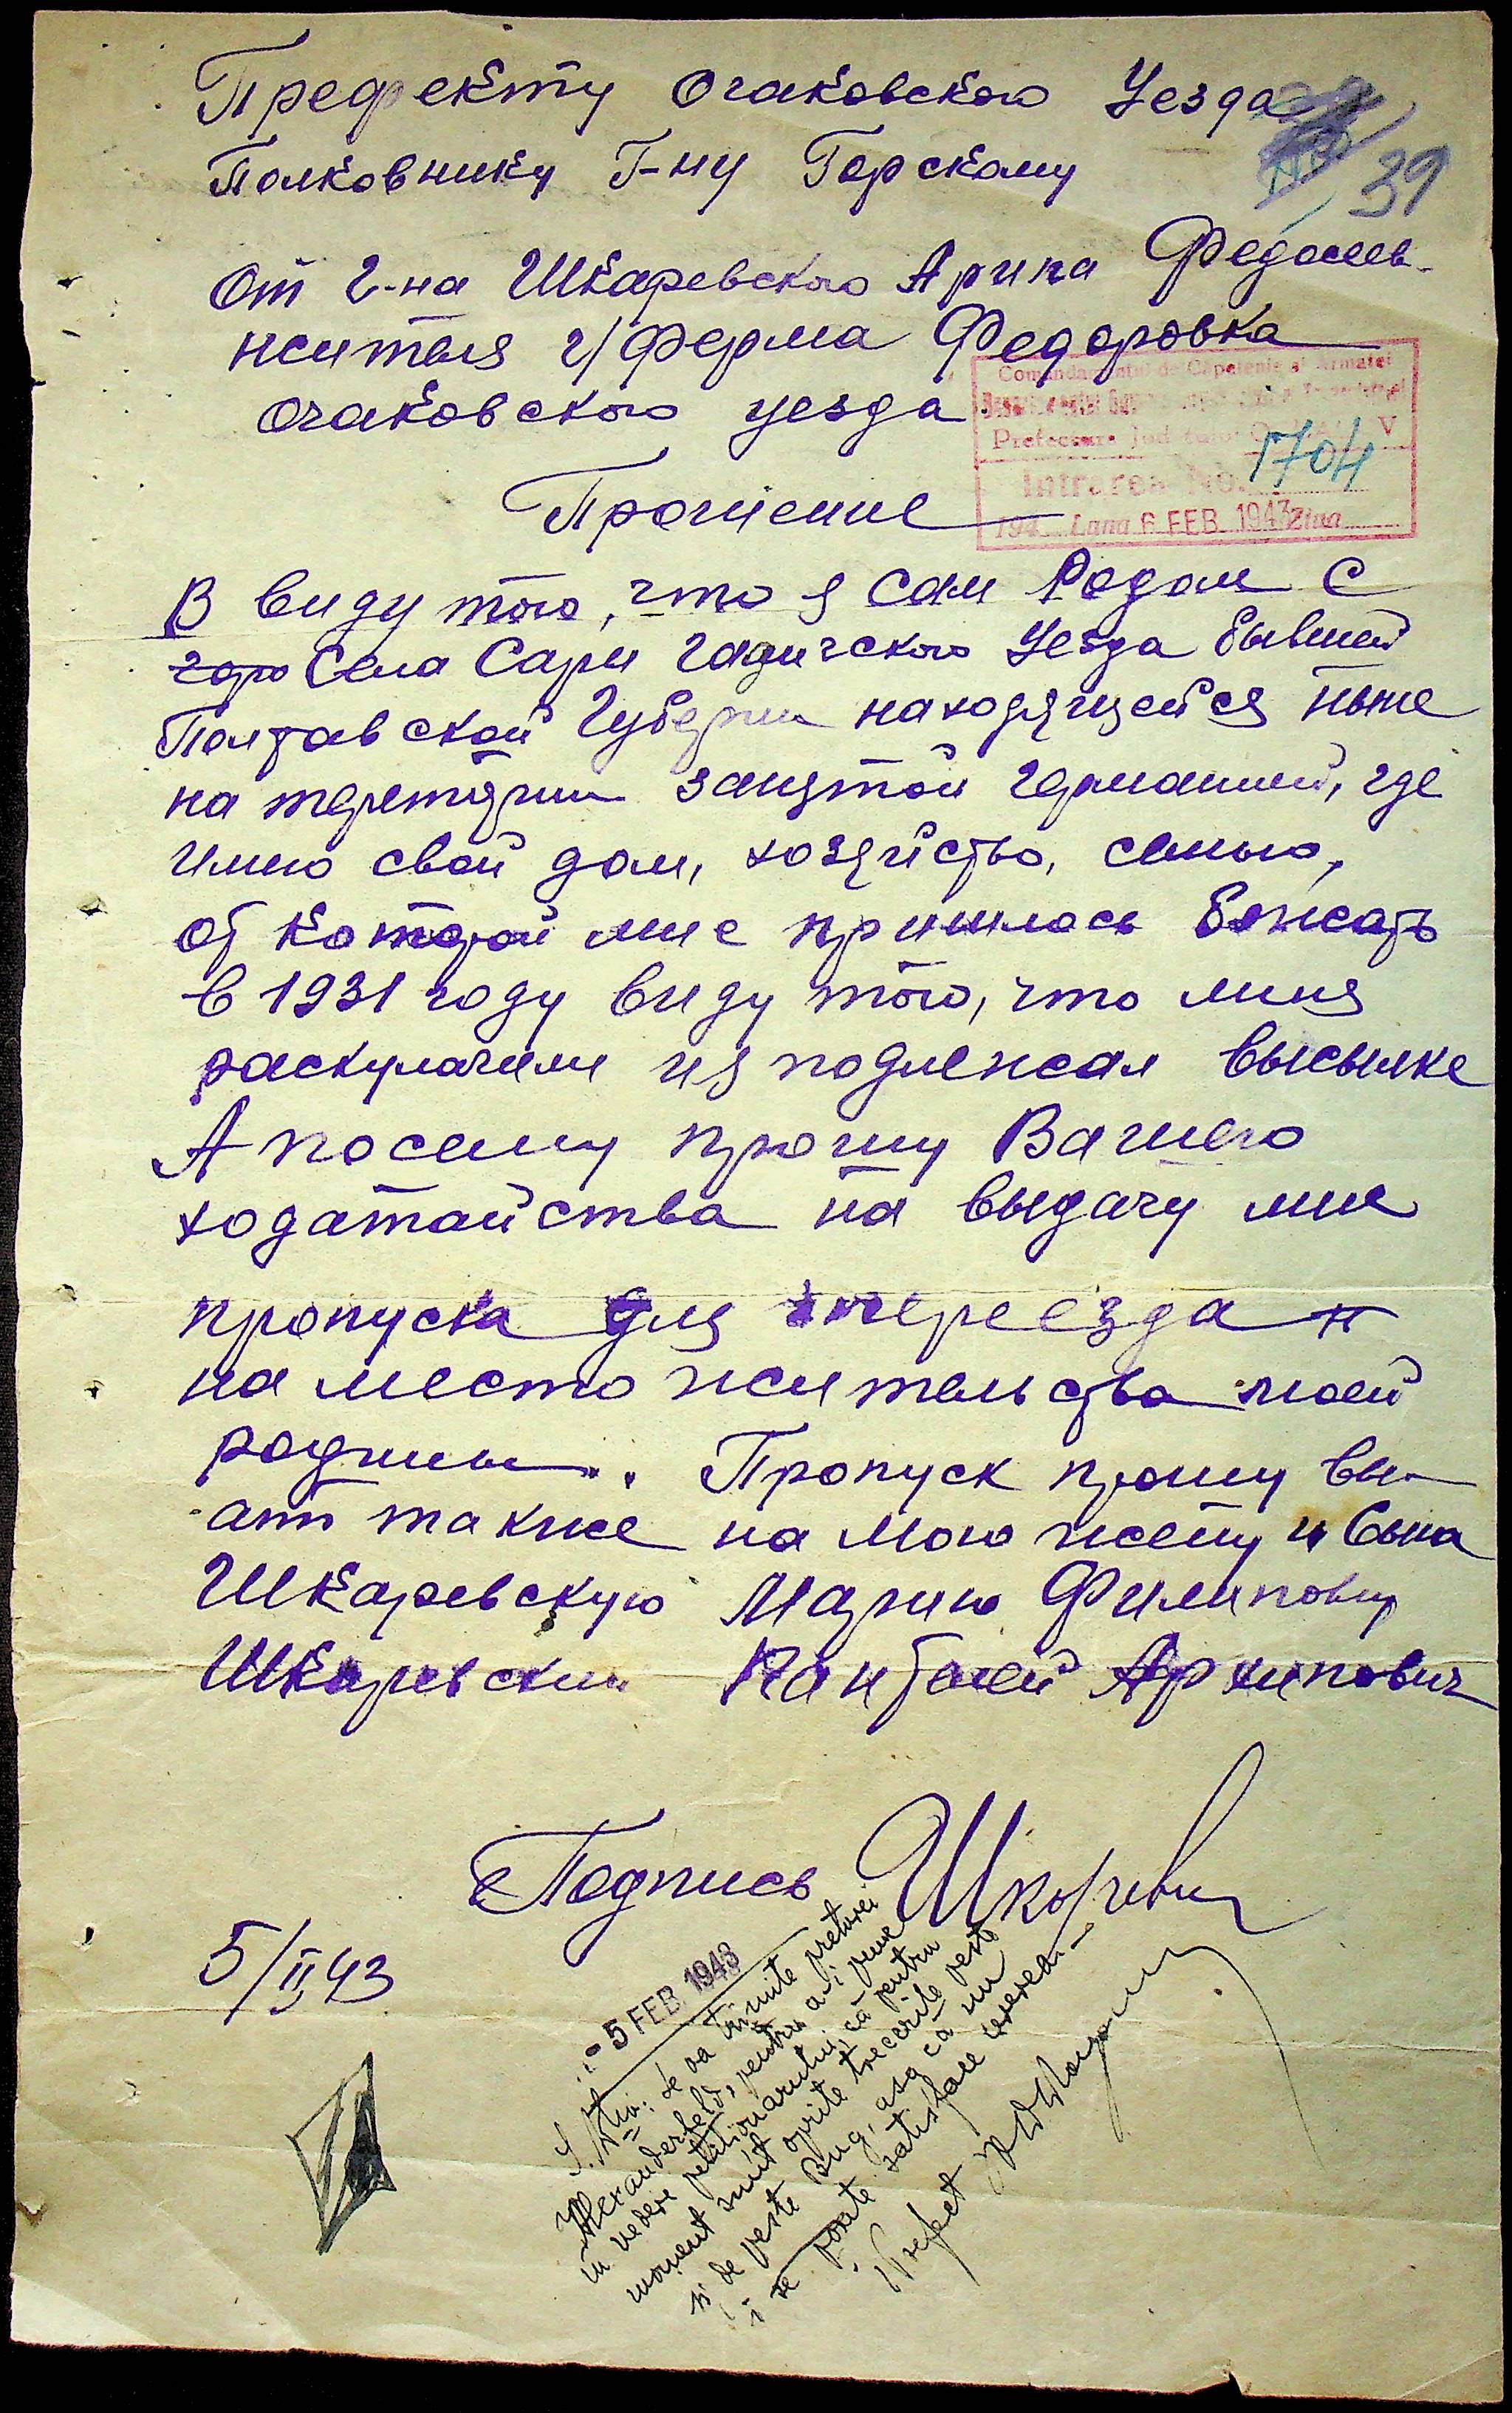 Префекту Очаковского Уезда
39
Полковнику Г-ну Горскому
От г-на Шкаревского Архипа Федосеев.
жителя г/ Ферма Федоровка
Очаковского уезда
Comandamentul de Căpetenie al Armatei
Prefectura Jud
V
Intrarea No. 1704
194 Luna 6 FEB. 1943 Ziua
Прошение
В виду того, что я сам Родом с
Села Сари Гадичского Уезда бывшей
Полтавской Губернии находящейся ныне
на теретории занятой германией, где
имею свой дом, хозяйство, семью,
от которой мне пришлось бежать
в 1931 году виду того, что миня
раскулачили и я подлежал высылке
А посему прошу Вашего
ходатайства на выдачу мне
пропуска для переезда
на место жительства моей
родины.. Пропуск прошу вы-
ать также на мою жену и Сына
Шкаревскую Марию Филиповну
Шкаревский Пантолей Архипович
Подпись Шкаревский
5/II 43
5 FEB. 1943
se va trimite preturei
Alexanderfeld, pentru a-i pune
în vedere petitionarului, că pentru
moment sunt oprite trecerile peste
și de peste Bug, așa că nu
i se poate satisface cererea.
Prefect